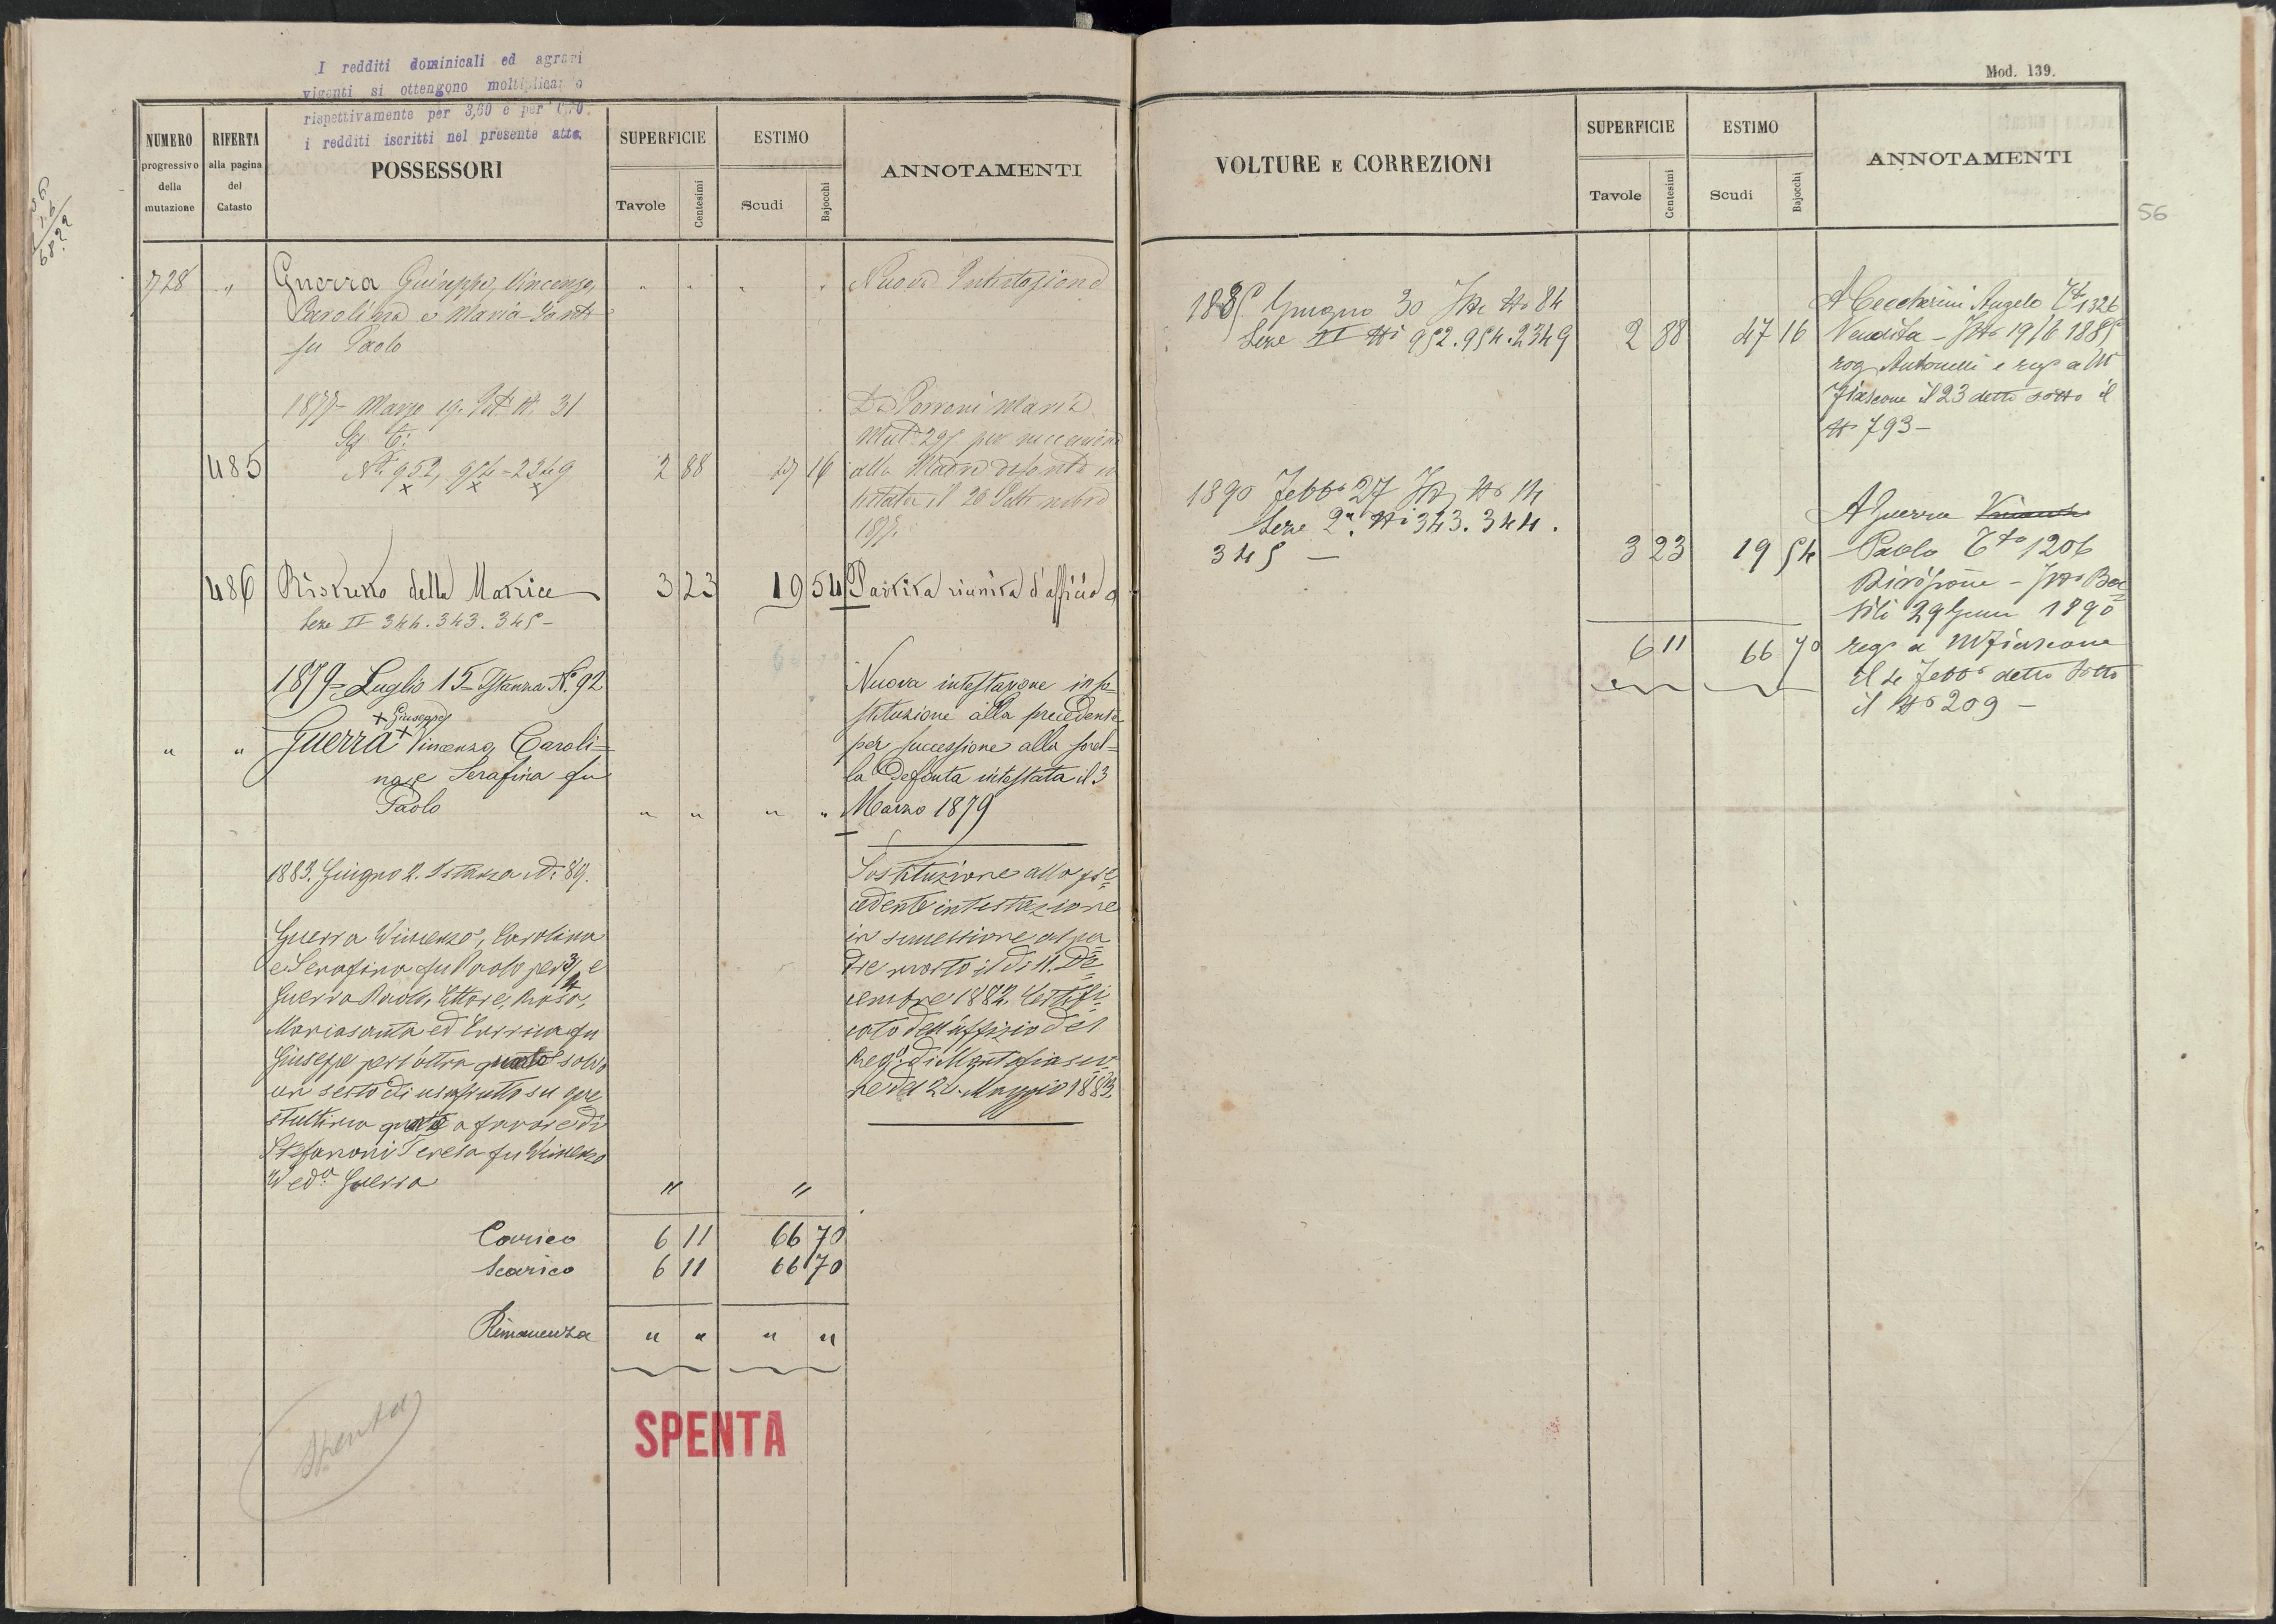 I redditi dominicali ed agrari
vigenti si ottengono moltiplicando
rispettivamente per 3,60 e per 0,70
i redditi iscritti nel presente atto.
NUMERO
progressivo
della
mutazione
RIFERTA
alla pagina
del
Catasto
POSSESSORI
SUPERFICIE
Tavole
Centesimi
ESTIMO
Scudi
Bajocchi
ANNOTAMENTI
728 " Guerra Giuseppe, Vincenzo, " " " " Nuova Intestazione
Carolina e Maria Santa
fu Paolo
1877 Marzo 19. Ist. N. 31 Da Porroni Maria
Mut. 295 per successione
485 Ni 952, 954-2349 2 88 47 16 alla Madre defonta in
testata il 20 Settembre
187
486 Ristretto della Matrice 3 23 19 54 Partita riunita d'afficio
Sez II 344. 343. 345 -
1879 Luglio 15 Istanza N. 92 Nuova intestazione in so-
+ Giuseppe stituzione alla precedente
" " Guerra + Vincenzo, Caroli= per successione alla sorel=
na, e Serafina fu la Defonta intestata il 3
Paolo " " " " Marzo 1879
1883. Giugno 2. Istanza N. 89. Sostituzione alla pre=
cedente intestazione
Guerra Vincenzo, Carolina in successione al pa=
e Serafina fu Paolo per 3/4 e dre morto il di 11. De=
Guerra Paolo, Ettore, Rosa, cembre 1882. Certifi=
Mariasanta ed Enrica fu cato dell'uffizio del
Giuseppe per l'altra quarto salvo Reg.o di Montefiasco=
un sesto di usufrutto su que ne del 24. Maggio 1883.
st'ultima quarta a favore di
Stefanoni Teresa fu Vincenzo
Ved.a Guerra " "
Carico 6 11 66 70
Scarico 6 11 66 70
Rimanenza " " " "
SPENTA
Spenta
Mod. 139.
56
VOLTURE E CORREZIONI
SUPERFICIE
Tavole
Centesimi
ESTIMO
Scudi
Bajocchi
ANNOTAMENTI
1885 Giugno 30 No 84 A Ceccherini Angelo 1326
Sez II Ni 952. 954. 2349 2 88 47 16 Vendita - 19/6 1885
rog Antonelli e reg a M
Fiascone il 23 detto sotto il
No 793 -
1890 Febb.o 27 No 14
Sez 2a Ni 343. 344. A Guerra
345 - 3 23 19 54 Paolo 1206
Divisione -
29 Genn 1890
6 11 66 70 reg a MFiascone
il 4 Febb.o detto sotto
il No 209 -